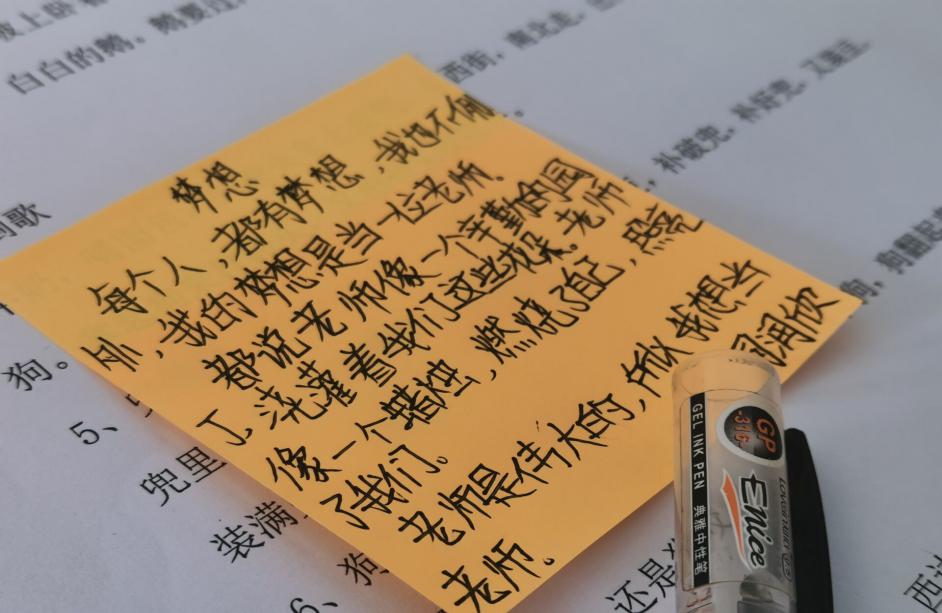 白白的鹅。鹅要过
西街,南北走,
补破兜,补好兜,又装豆
梦想
每个人,都有梦想,我也不例
外,我的梦想是当一位老师。
都说老师像一个辛勤的园
丁,浇灌着我们这些花朵。老师
像一个蜡烛,燃烧了自己,照亮
了我们。
老师是伟大的,所以我想当
老师。
润欣
狗。
5、
兜里
装满
6、狗
还是
GP
-316-
GEL INK PEN 典雅中性笔
Enice